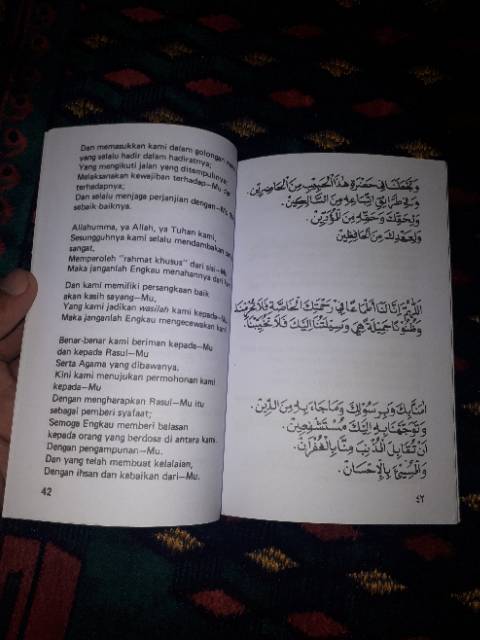 Dan memasukkan kami dalam golongan
yang selalu hadir dalam hadiratnya;
Yang mengikuti jalan yang ditempuhnya
Melaksanakan kewajiban terhadap—Mu
terhadapnya;
Dan selalu menjaga perjanjian dengan—
sebaik-baiknya.
Allahumma, ya Allah, ya Tuhan kami,
Sesungguhnya kami selalu mendambakan
sangat,
Memperoleh "rahmat khusus" dari sisi—Mu
Maka janganlah Engkau menahannya dari
Dan kami memiliki persangkaan baik
akan kasih sayang—Mu,
Yang kami jadikan wasilah kami kepada—Mu
Maka janganlah Engkau mengecewakan kami
Benar-benar kami beriman kepada—Mu
dan kepada Rasul—Mu
Serta Agama yang dibawanya.
Kini kami menujukan permohonan kami
kepada—Mu
Dengan mengharapkan Rasul—Mu itu
sebagai pemberi syafaat;
Semoga Engkau memberi balasan
kepada orang yang berdosa di antara kami
Dengan pengampunan—Mu.
Dan yang telah membuat kelalaian,
Dengan ihsan dan kebaikan dari—Mu.
42
وَتَجْعَلَنَا فِي حَضْرَةِ هٰذَا الْحَبِيْبِ مِنَ الْحَاضِرِيْنَ.
وَفِي طَرَائِقِ اتِّبَاعِهِ مِنَ السَّالِكِيْنَ.
وَلِحَقِّكَ وَحَقِّهِ مِنَ الْمُؤَدِّيْنَ.
وَلِعَهْدِكَ مِنَ الْحَافِظِيْنَ.
اَللّٰهُمَّ اِنَّ لَنَا اَطْمَاعًا فِي رَحْمَتِكَ الْخَاصَّةِ فَلَا تَحْرِمْنَا
وَظُنُوْنًا جَمِيْلَةً هِيَ وَسِيْلَتُنَا اِلَيْكَ فَلَا تُخَيِّبْنَا.
اٰمَنَّا بِكَ وَبِرَسُوْلِكَ وَمَا جَاءَ بِهِ مِنَ الدِّيْنِ.
وَتَوَجَّهْنَا بِهِ اِلَيْكَ مُسْتَشْفِعِيْنَ.
اَنْ تُقَابِلَ الْمُذْنِبَ مِنَّا بِالْغُفْرَانِ.
وَالْمُسِيْءَ بِالْاِحْسَانِ.
٤٢